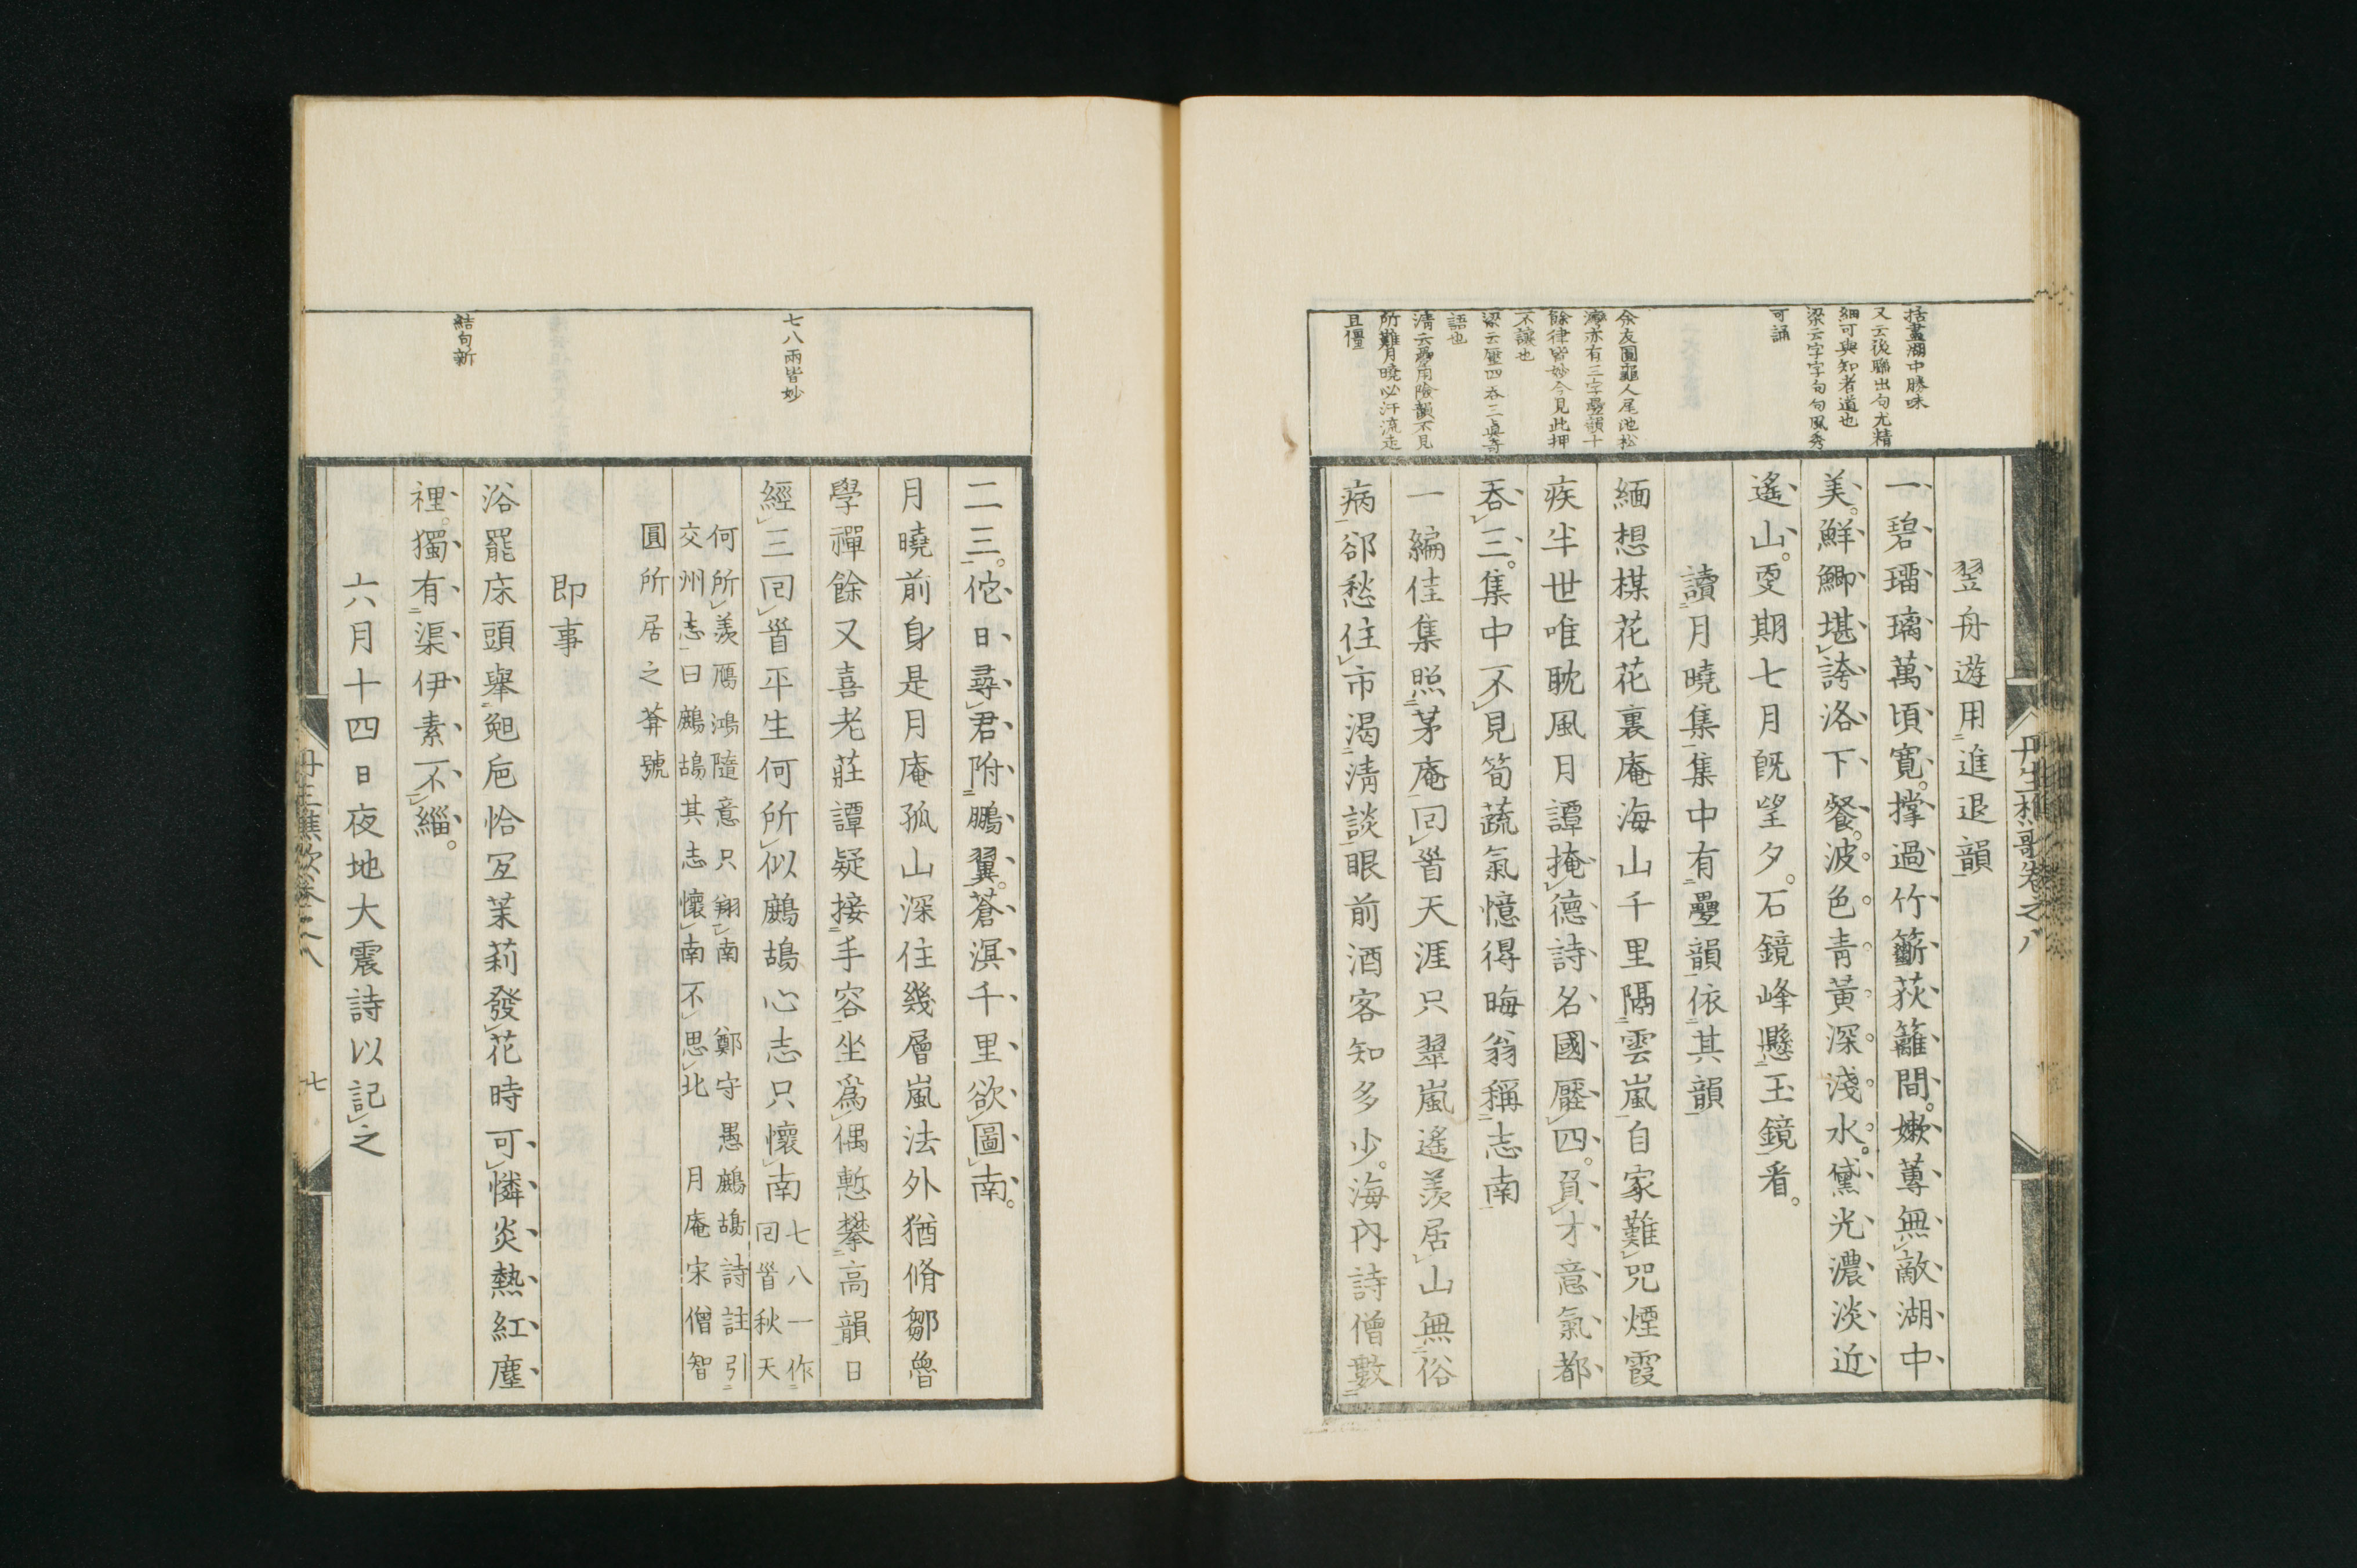 括盡湖中勝味
又云後聯出句尤精
細可與知者道也
梁云字字句句風秀
可誦
余友圓龜人尾池松
灣亦有三字疊韻十
餘律皆妙今見此押
不讓也
梁云壓四吞三真奇
語也
淸云疊用險韻不見
所難月曉必汗流走
且僵
翌舟遊用進退韻
一碧瑠璃萬頃寬。撐過竹籪荻籬間。嫩蓴無敵湖中
美。鮮鯽堪誇洛下餐。波色靑黃深淺水。黛光濃淡近
遙山。更期七月旣望夕。石鏡峰懸玉鏡看。
讀月曉集集中有疊韻依其韻
緬想楳花花裏庵海山千里隔雲嵐自家難咒煙霞
疾半世唯耽風月譚掩德詩名國壓四。負才意氣都
吞三。集中不見筍蔬氣憶得晦翁稱志南
一編佳集照茅庵回首天涯只翠嵐遙羨居山無俗
病郤愁住市渴淸談眼前酒客知多少。海內詩僧數
七八兩皆妙
結句新
二三。佗日尋君附鵬翼。蒼溟千里欲圖南。
月曉前身是月庵孤山深住幾層嵐法外猶脩鄒魯
學禪餘又喜老莊譚疑接手容坐爲偶慙攀高韻日
經三回首平生何所似鷓鴣心志只懷南 七八一作
回首秋天
何所羨鴈鴻隨意只翔南 鄭守愚鷓鴣詩註引
交州志曰鷓鴣其志懷南不思北 月庵宋僧智
圓所居之菴號
即事
浴罷床頭舉匏巵恰宜茉莉發花時可憐炎熱紅塵
裡。獨有渠伊素不緇。
六月十四日夜地大震詩以記之
七